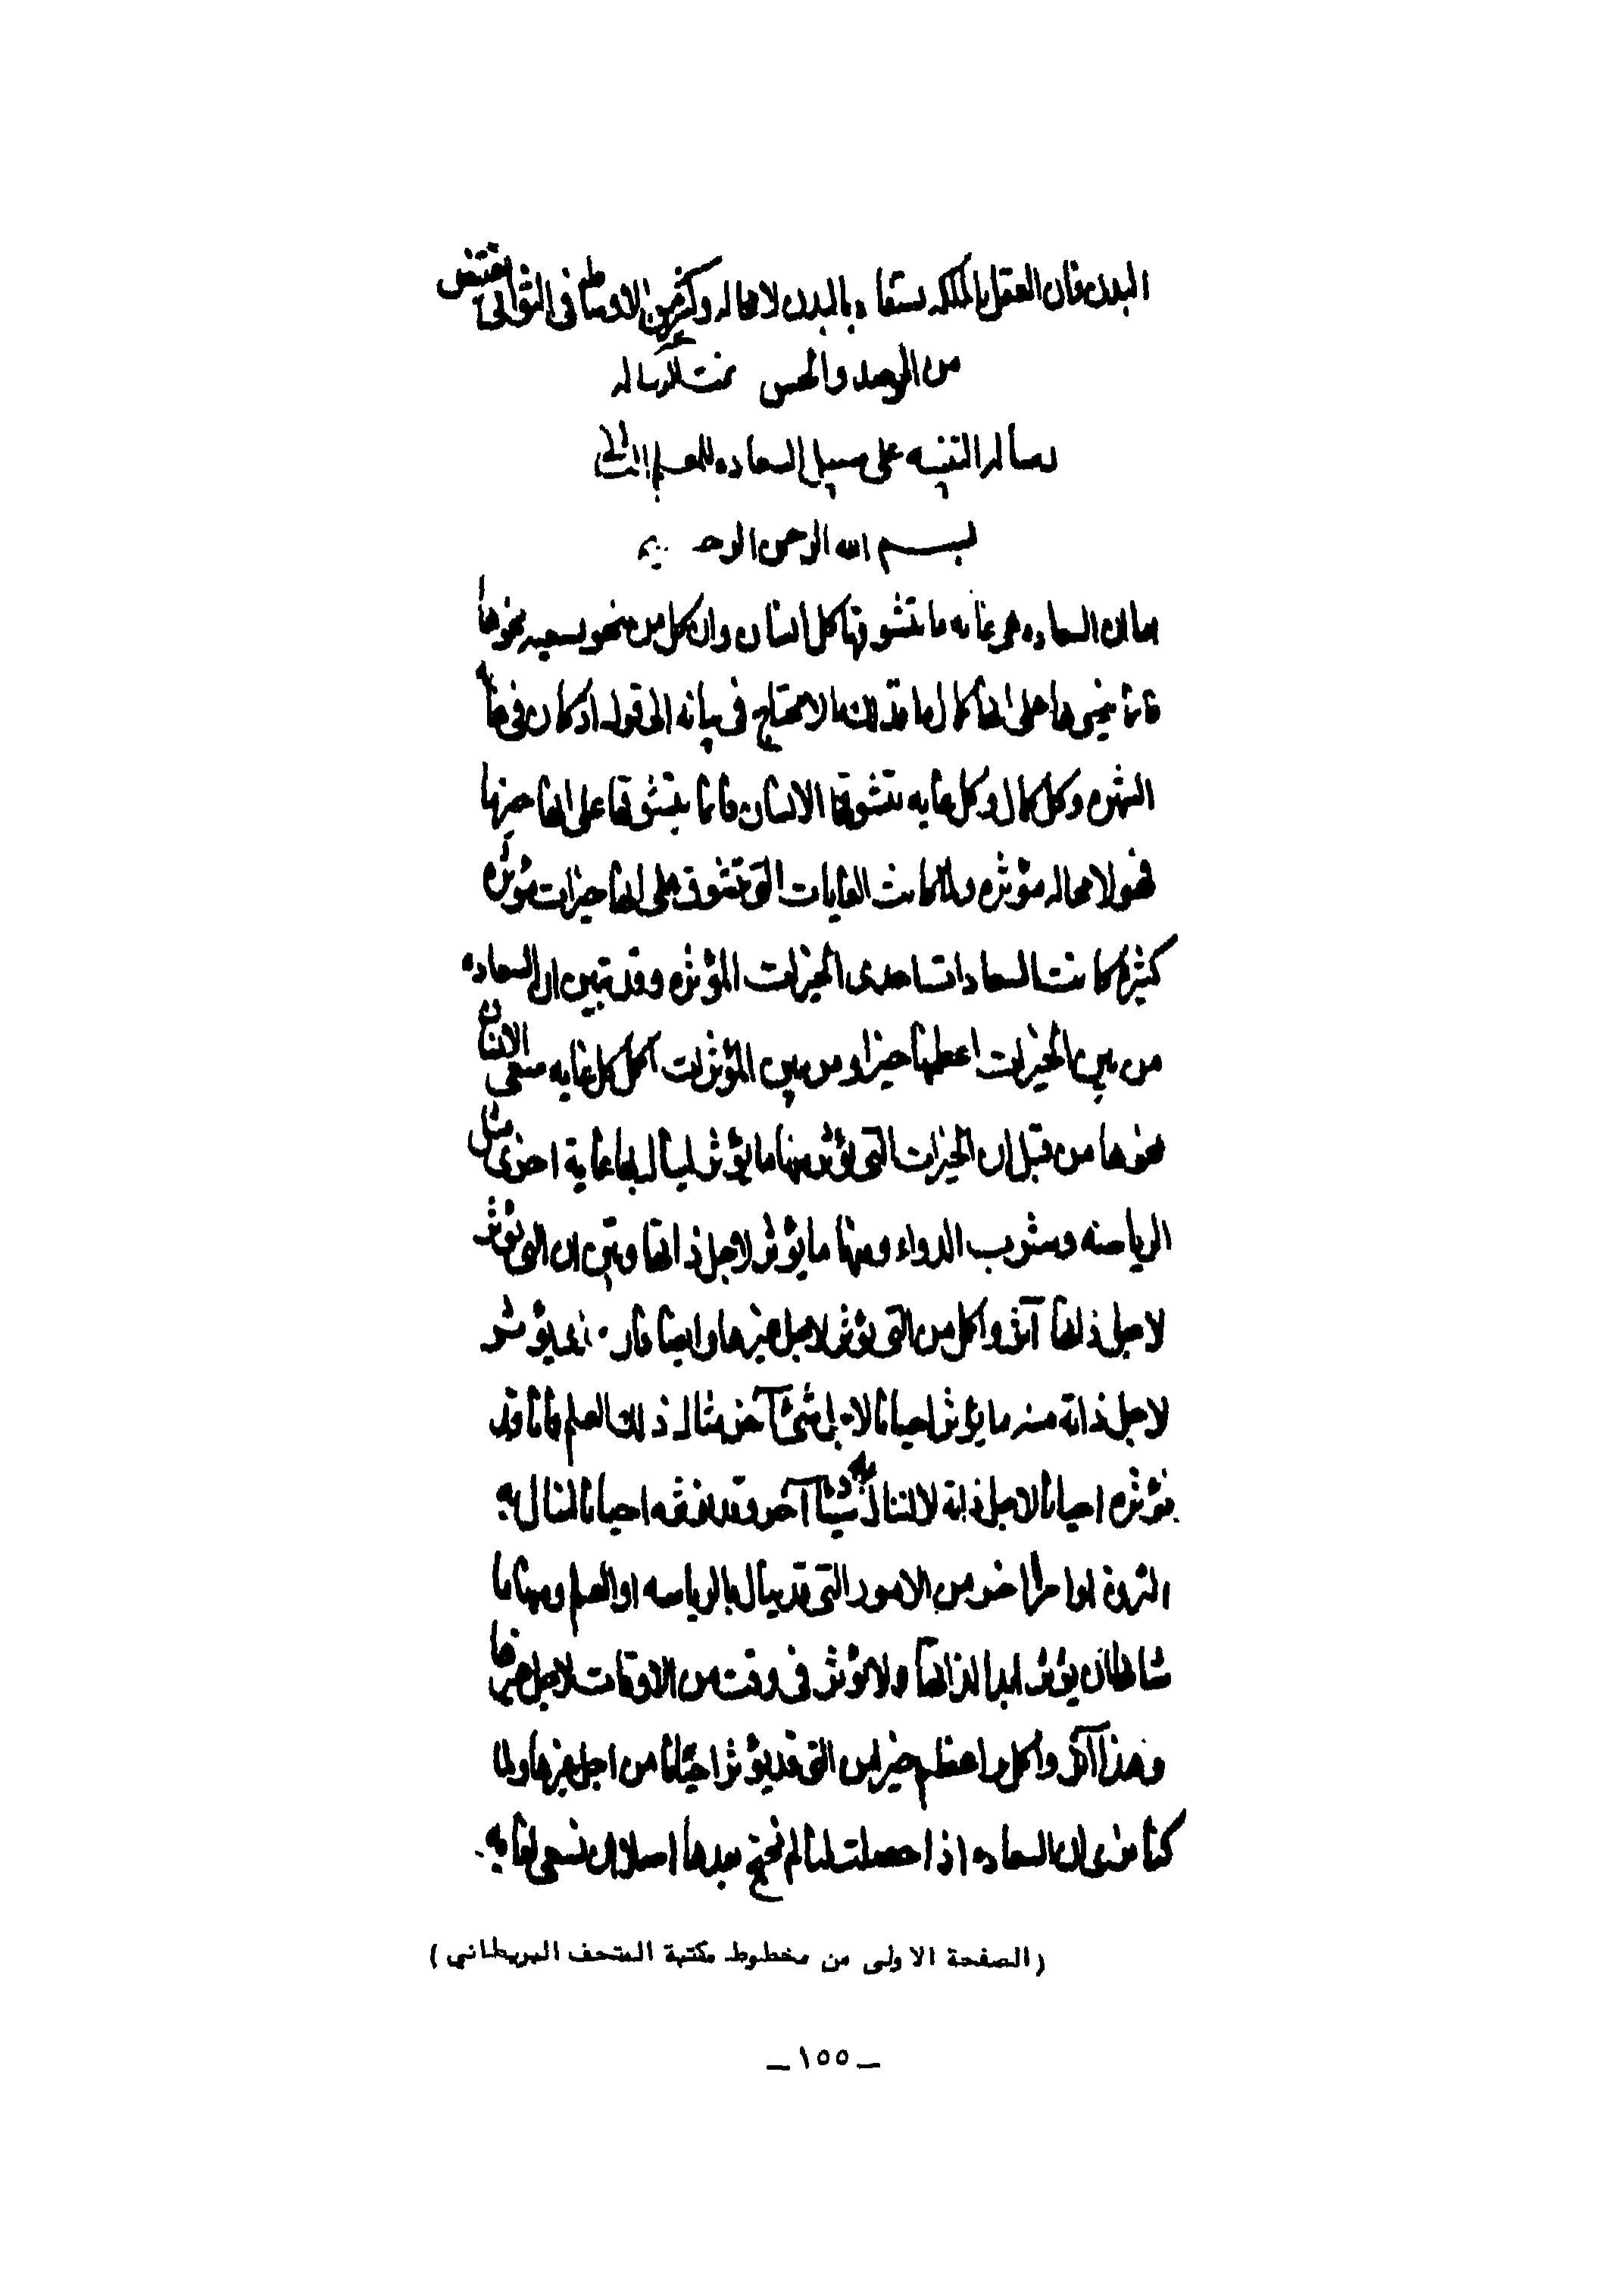 البدن فان العقل بالملكه يستفاد بالبدن لا محاله وكثير من الاوساط في الثواني يقتنص
من الرصد والحس تمت الرساله
رساله التنبيه على سبيل السعاده للمعلم الثاني
بسم الله الرحمن الرحيم
اما ان السعاده هى غايه ما يتشوقها كل انسان وان كل من ينحو بسعيه نحوها
فانما ينحوها على انها كمال ما فذلك ما لا يحتاج في بيانه الى قول اذ كان في غايه
الشهره وكل كمال وكل غايه يتشوقها الانسان فانما يتشوقها على انها خير ما
فهو لا محاله مؤثره ولما كانت الغايات التي تتشوق على انها خيرات مؤثره
كثيره كانت السعادات احدى الخيرات المؤثره وقد تبين ان السعاده
من بين الخيرات اعظمها خيرا ومن بين المؤثرات اكمل كل غايه يسعى الانسان
نحوها من قبل ان الخيرات التي تؤثر منها ما يؤثر لينال بها غاية اخرى مثل
الرياضه وشرب الدواء ومنها ما يؤثر لاجل ذاتها وبين ان التي تؤثر
لاجل ذاتها آثر واكمل من التي تؤثر لاجل غيرها وايضا فان الذى يؤثر
لاجل ذاته منه ما يؤثر احيانا لاجل شئ آخر مثال ذلك العلم فانا قد
نؤثره احيانا لاجل ذاته لا لننال به شيئا آخر وقد نؤثره احيانا لننال به
الثروة او امرا اخر من الامور التي قد ينال بالرياسه او العلم ومنها ما
شانها ان يؤثر ابدا لذاتها ولا تؤثر في وقت من الاوقات لاجل غيرها
وهذا آثر واكمل واعظم خيرا من التي قد يؤثر احيانا من اجل غيرها ولما
كنا نرى ان السعاده اذا حصلت لنا لم نحتج بعدها اصلا ان نسعى لغايه
(الصفحة الاولى من مخطوط مكتبة المتحف البريطاني)
– ١٥٥ –